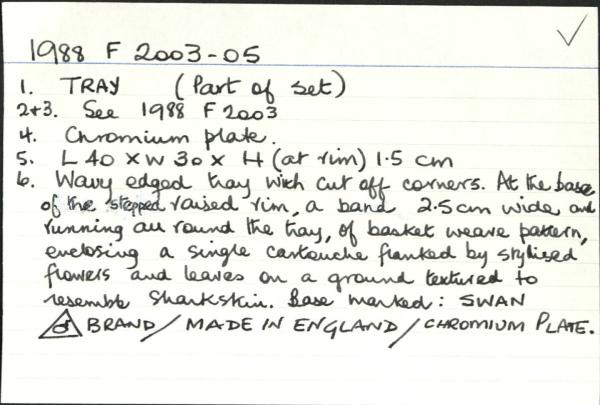 1988 F 2003-05
1. TRAY (Part of set)
2+3. See 1988 F 2003
4. Chromium plate.
5. L 40 x W 30 x H (at rim) 1.5 cm
6. Wavy edged tray with cut off corners. At the base
of the stepped raised rim, a band 2.5cm wide and
running all round the tray, of basket weave pattern,
enclosing a single cartouche flanked by stylised
flowers and leaves on a ground textured to
resemble sharkskin. Base marked: SWAN
BRAND / MADE IN ENGLAND / CHROMIUM PLATE.